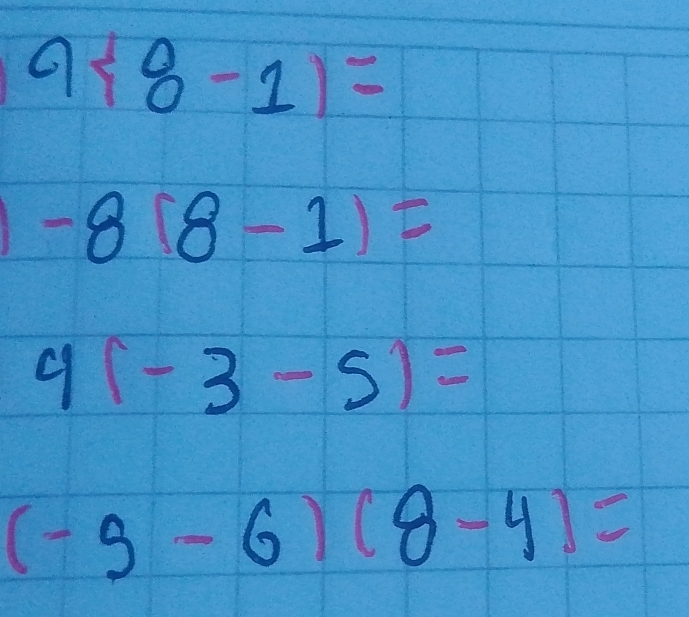 ) 9{8-1)=
) -8(8-1)=
9(-3-5)=
(-9-6)(8-4)=